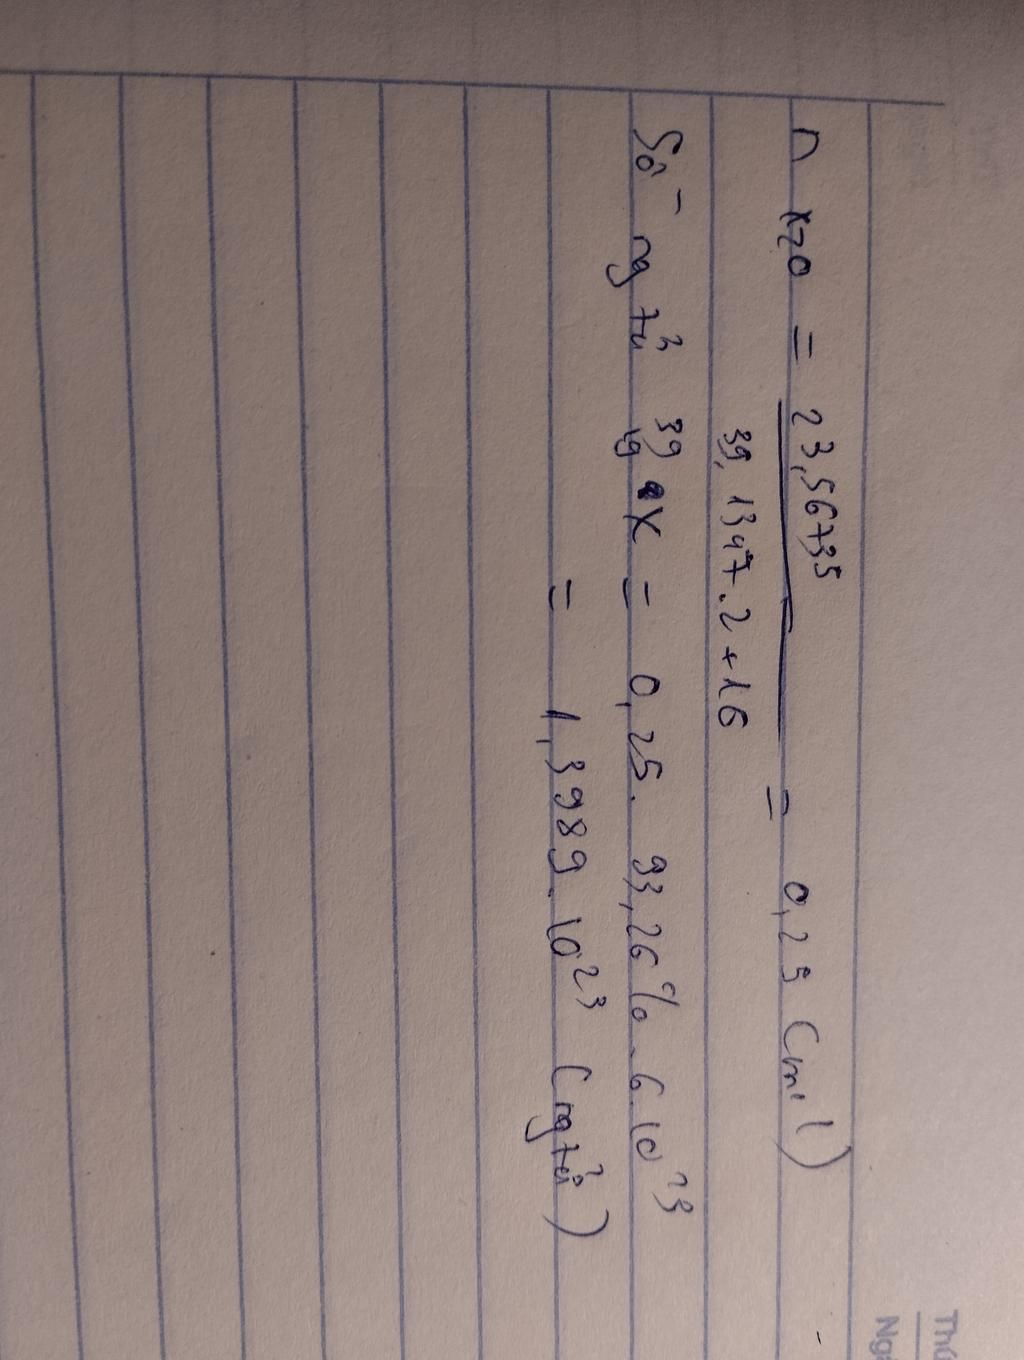 n X2O = 23,56735 / 39,1347.2+16 = 0,25 (mol)
Số ngtử 39 19 X = 0,25. 93,26%.6.10²³
= 1,3989.10²³ (ngtử)